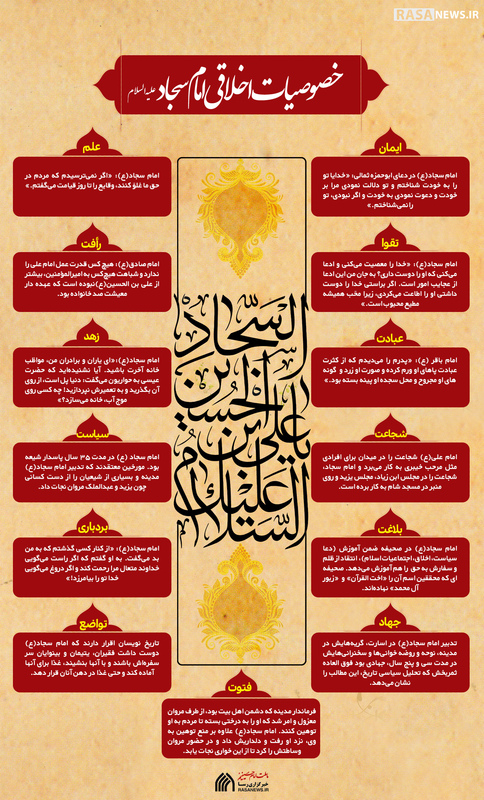 RASANEWS.IR
خصوصیات اخلاقی امام سجاد علیه‌السلام
ایمان
امام سجاد(ع) در دعای ابوحمزه ثمالی: «خدایا تو
را به خودت شناختم و تو دلالت نمودی مرا بر
خودت و دعوت نمودی به خودت و اگر نبودی، تو
را نمی‌شناختم.»
علم
امام سجاد(ع): «اگر نمی‌ترسیدم که مردم در
حق ما غلو کنند، وقایع را تا روز قیامت می‌گفتم.»
تقوا
امام سجاد(ع): «خدا را معصیت می‌کنی و ادعا
می‌کنی که او را دوست داری؟ به جان من این ادعا
از عجایب امور است. اگر براستی خدا را دوست
داشتی او را اطاعت می‌کردی، زیرا محب همیشه
مطیع محبوب است.»
رأفت
امام صادق(ع): هیچ کس قدرت عمل امام علی را
ندارد و شباهت هیچ‌کس به امیرالمؤمنین، بیشتر
از علی بن الحسین(ع) نبوده است که عهده دار
معیشت صد خانواده بود.
عبادت
امام باقر (ع): «پدرم را می‌دیدم که از کثرت
عبادت پاهای او ورم کرده و صورت او زرد و گونه
های او مجروح و محل سجده او پینه بسته بود.»
زهد
امام سجاد(ع): «ای یاران و برادران من، مواظب
خانه آخرت باشید. آیا نشنیده‌اید که حضرت
عیسی به حواریون می‌گفت: دنیا پل است، از روی
آن بگذرید و به تعمیرش نپردازید! چه کسی روی
موج آب، خانه می‌سازد؟»
شجاعت
امام علی(ع) شجاعت را در میدان برای افرادی
مثل مرحب خیبری به کار می‌برد و امام سجاد،
شجاعت را در مجلس ابن زیاد، مجلس یزید و روی
منبر در مسجد شام به کار برده است.
سیاست
امام سجاد (ع) در مدت ۳۵ سال پاسدار شیعه
بود. مورخین معتقدند که تدبیر امام سجاد(ع)
مدینه و بسیاری از شیعیان را از دست کسانی
چون یزید و عبدالملک مروان نجات داد.
بلاغت
امام سجاد(ع) در صحیفه ضمن آموزش (دعا
سیاست، اخلاق، اجتماعیات اسلام)، انتقاد از ظلم
و سفارش به حق را هم آموزش می‌دهد. صحیفه
ای که محققین اسم آن را «اخت القرآن» و «زبور
آل محمد» نهاده‌اند.
بردباری
امام سجاد(ع): «از کنار کسی گذشتم که به من
بد می‌گفت. به او گفتم که اگر راست می‌گویی
خداوند متعال مرا رحمت کند و اگر دروغ می‌گویی
خدا تو را بیامرزد!»
جهاد
تدبیر امام سجاد(ع) در اسارت، گریه‌هایش در
مدینه، نوحه و روضه خوانی‌ها و سخنرانی‌هایش
در مدت سی و پنج سال، جهادی بود فوق العاده
ثمربخش که تحلیل سیاسی تاریخ، این مطالب را
نشان می‌دهد.
تواضع
تاریخ نویسان اقرار دارند که امام سجاد(ع)
دوست داشت فقیران، یتیمان و بینوایان سر
سفره‌اش باشند و با آنها بنشیند، غذا برای آنها
آماده کند و حتی غذا در دهن آنان قرار دهد.
فتوت
فرماندار مدینه که دشمن اهل بیت بود، از طرف مروان
معزول و امر شد که او را به درختی بسته تا مردم به او
توهین کنند. امام سجاد(ع) علاوه بر منع توهین به
وی، نزد او رفت و دلداریش داد و در حضور مروان
وساطتش را کرد تا از این خواری نجات یابد.
السلام علیك
یا علي بن الحسین
السجاد
خبرگزاری رسا
RASANEWS.IR